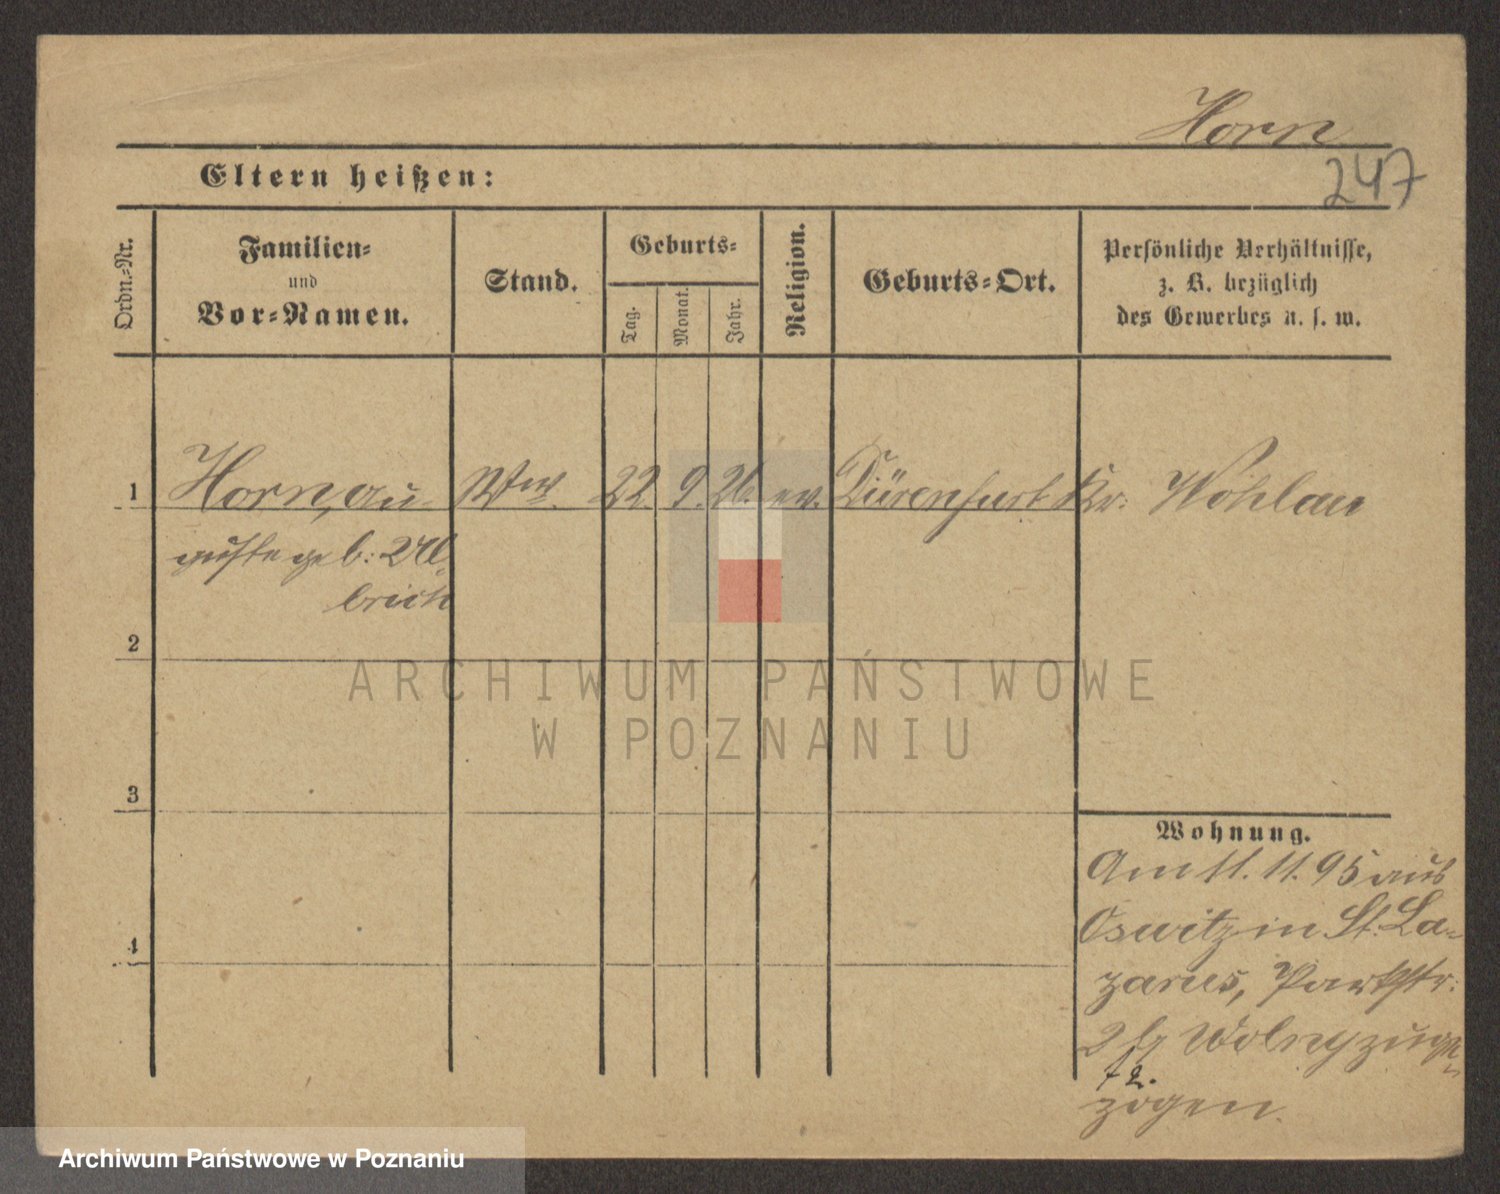 Horn
247
Eltern heißen:
Ordn.-Nr.
Familien-
und
Vor-Namen.
Stand.
Geburts-
Tag.
Monat.
Jahr.
Religion.
Geburts-Ort.
Persönliche Verhältnisse,
z. B. bezüglich
des Gewerbes u. s. w.
1 Horn, Au- Ww. 22. 9. 26. ev. Dürenfurt Kr. Wohlau
guste geb: Ul-
brich
2
3
4
Wohnung.
Am 11. 11. 95 aus
Oswitz in St. La-
zarus, Parkstr.
2 zuge-
zogen.
ARCHIWUM PAŃSTWOWE
W POZNANIU
Archiwum Państwowe w Poznaniu